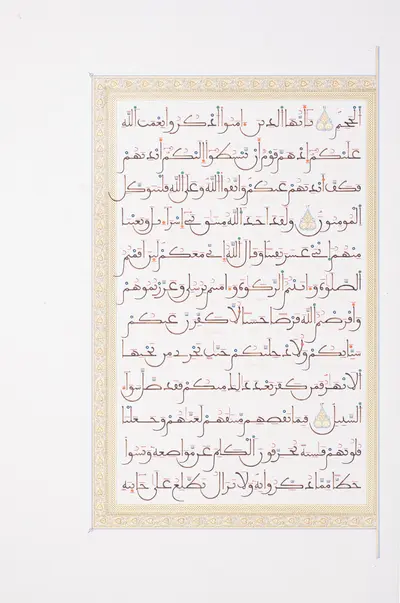 الجحيم يأيها الذين ءامنوا اذكروا نعمت الله
عليكم إذ هم قوم أن يبسطوا إليكم أيديهم
فكف أيديهم عنكم واتقوا الله وعلى الله فليتوكل
المومنون ولقد أخذ الله ميثق بني إسراءيل وبعثنا
منهم اثني عشر نقيبا وقال الله إني معكم لئن أقمتم
الصلوة وءاتيتم الزكوة وءامنتم برسلي وعزرتموهم
وأقرضتم الله قرضا حسنا لأكفرن عنكم
سيئاتكم ولأدخلنكم جنت تجري من تحتها
الأنهر فمن كفر بعد ذلك منكم فقد ضل سواء
السبيل فبما نقضهم ميثقهم لعنهم وجعلنا
قلوبهم قسية يحرفون الكلم عن مواضعه ونسوا
حظا مما ذكروا به ولا تزال تطلع على خاينة